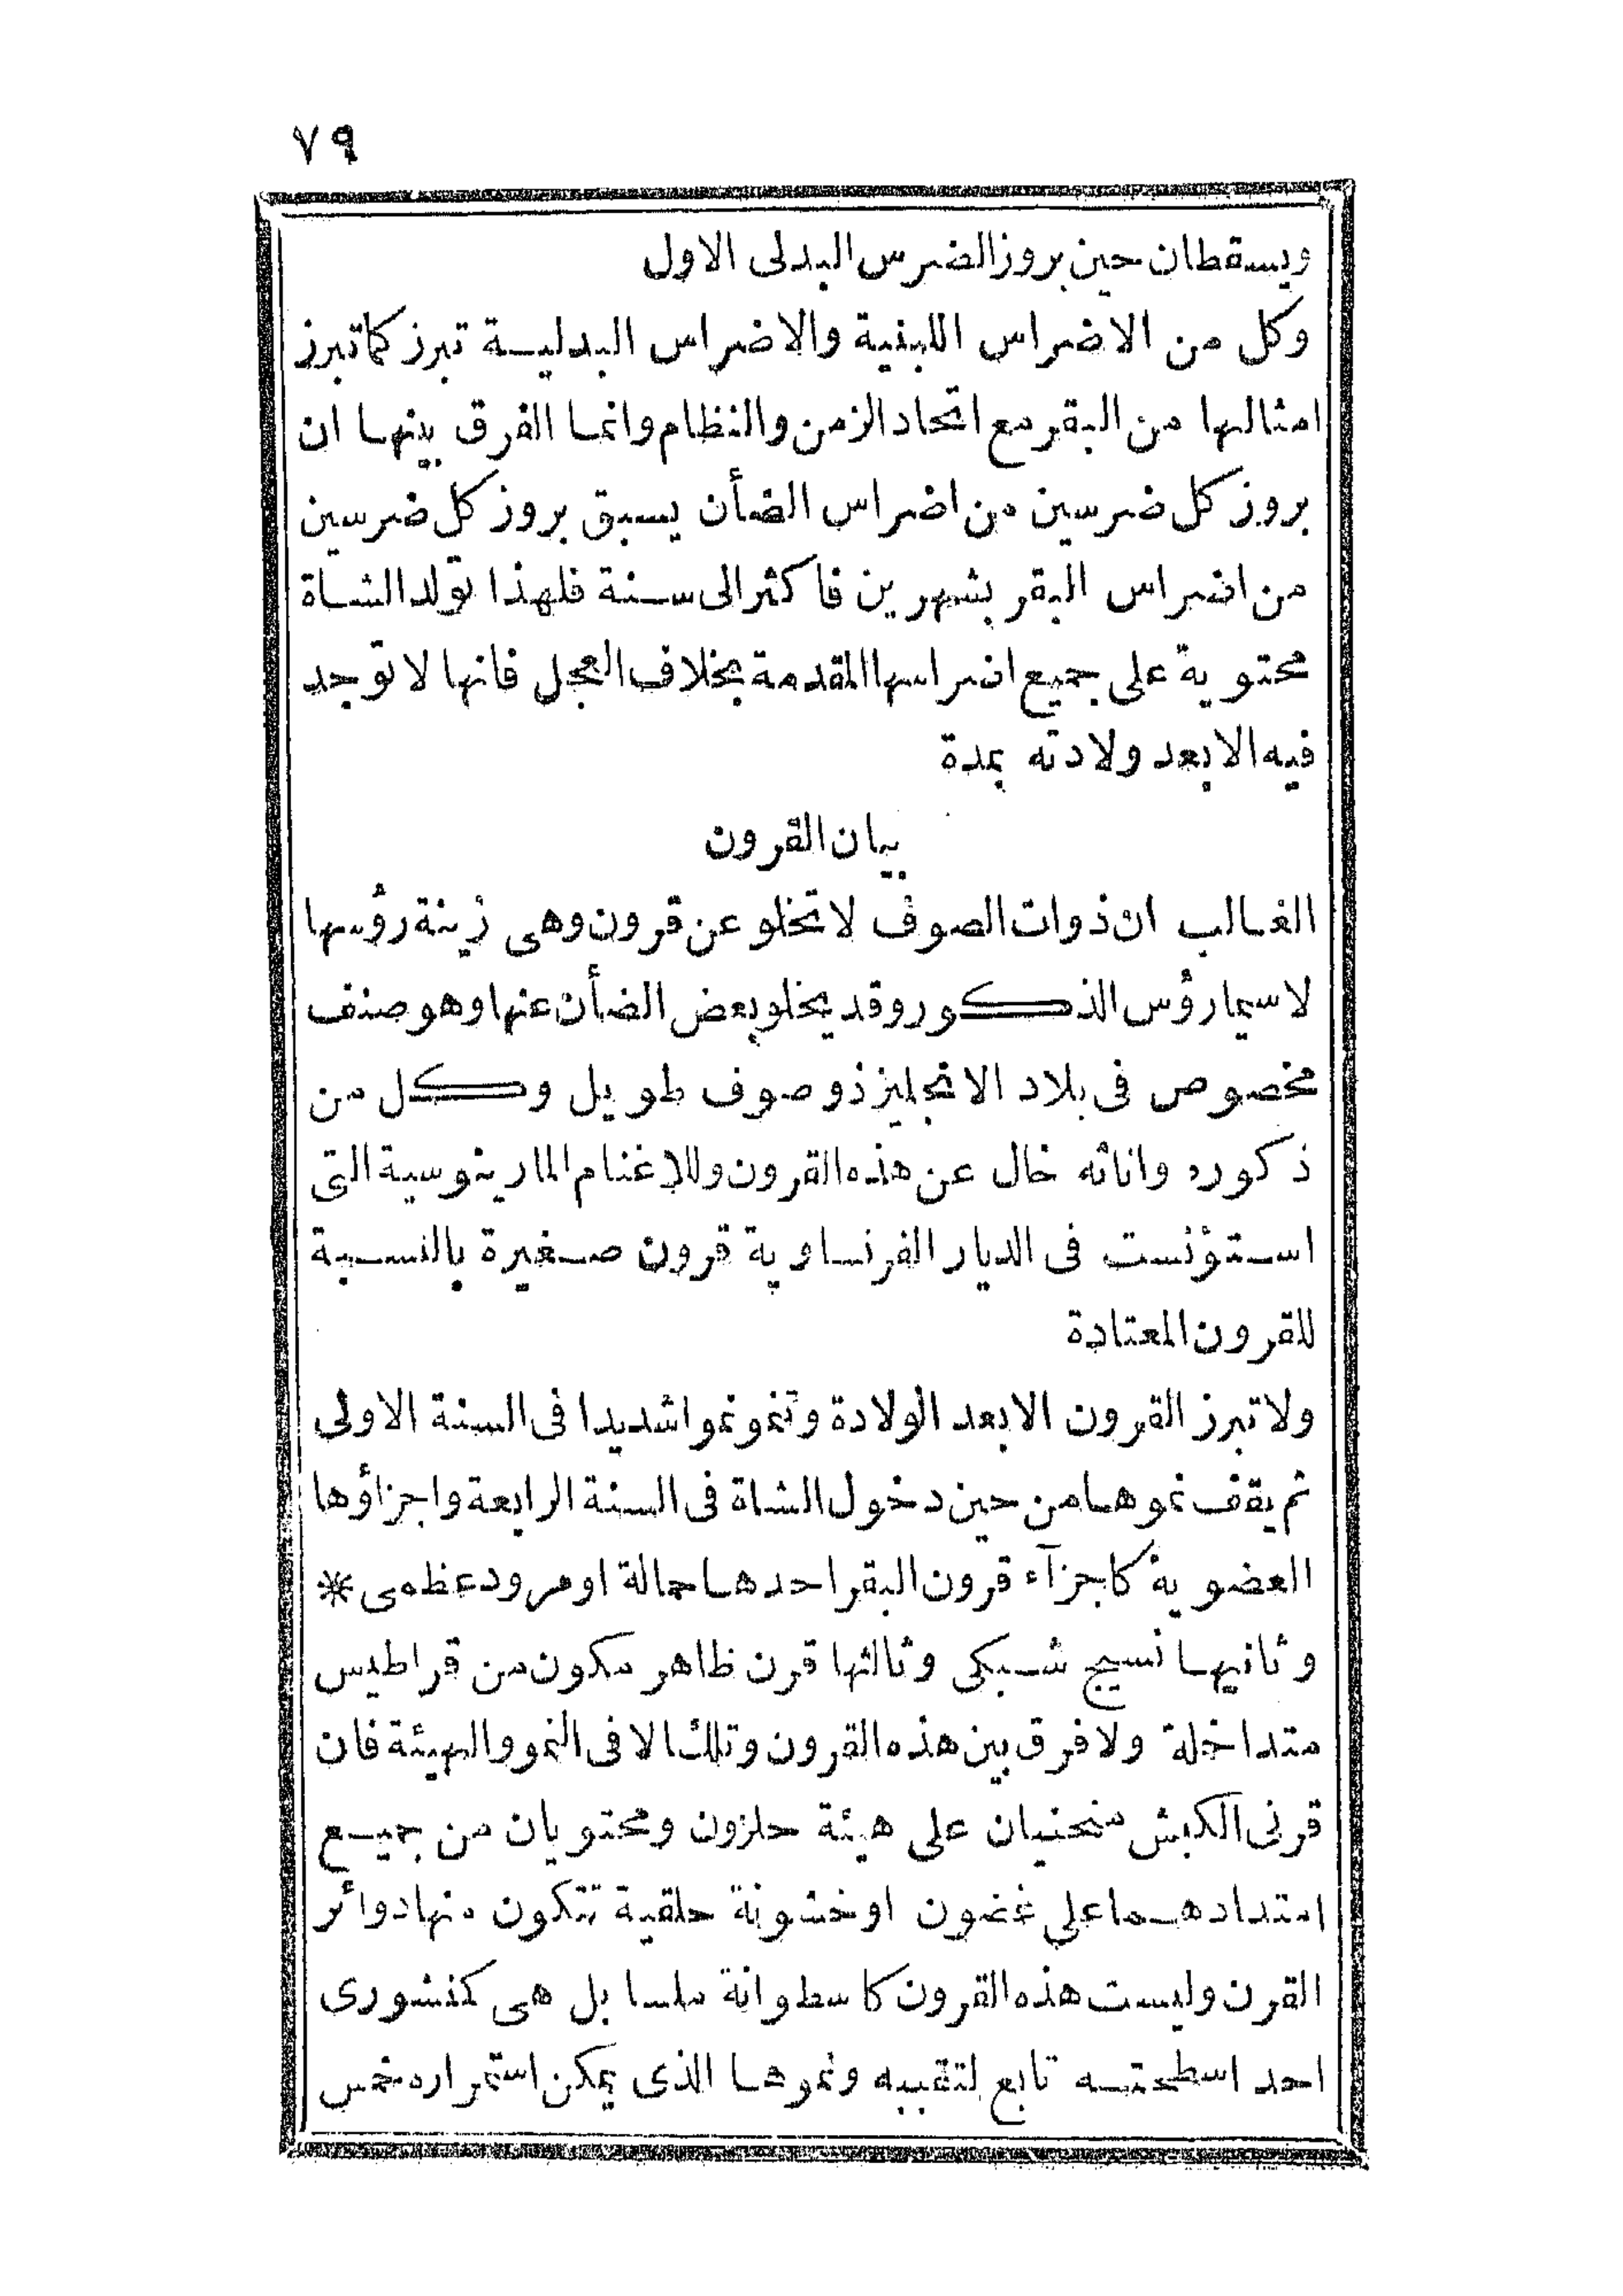 ٧٩
ويسقطان حين بروز الضرس البدلى الاول
وكل من الاضراس اللبنية والاضراس البدلية تبرز كما تبرز
امثالها من البقر مع اتحاد الزمن والنظام وانما الفرق بينها ان
بروز كل ضرسين من اضراس الضأن يسبق بروز كل ضرسين
من اضراس البقر بشهرين فاكثر الى سنة فلهذا تولد الشاة
محتوية على جميع اضراسها المقدمة بخلاف العجل فانها لا توجد
فيه الا بعد ولادته بمدة
بيان القرون
الغالب ان ذوات الصوف لا تخلو عن قرون وهى زينة رؤسها
لاسيما رؤس الذكور وقد يخلو بعض الضأن عنها وهو صنف
مخصوص فى بلاد الانجليز ذو صوف طويل وكل من
ذكوره واناثه خال عن هذه القرون وللاغنام المارينوسية التى
استؤنست فى الديار الفرنساوية قرون صغيرة بالنسبة
للقرون المعتادة
ولا تبرز القرون الا بعد الولادة وتنمو نموا شديدا فى السنة الاولى
ثم يقف نموها من حين دخول الشاة فى السنة الرابعة واجزاؤها
العضوية كاجزآء قرون البقر احدها حمالة او مرود عظمى *
وثانيها نسيج شبكى وثالثها قرن ظاهر مكون من قراطيس
متداخلة ولا فرق بين هذه القرون وتلك الا فى النمو والهيئة فان
قرنى الكبش منحنيان على هيئة حلزون ومحتويان من جميع
امتدادهما على غضون او خشونة حلقية تتكون منها دوائر
القرن وليست هذه القرون كاسطوانة ملسا بل هى كنشورى
احد اسطحته تابع لتقببه ونموها الذى يمكن استمراره خمس